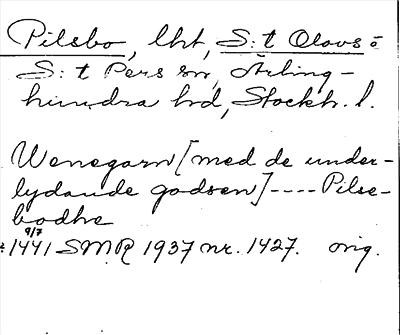 Pilsbo, lht, S:t Olovs o
S:t Pers sn, Ärling-
hundra hd, Stockh. l.
Wenegarn [med de under-
lydande godsen] ---- Pilse-
bodhe
9/7
1441 SMR 1937 nr. 1427. orig.